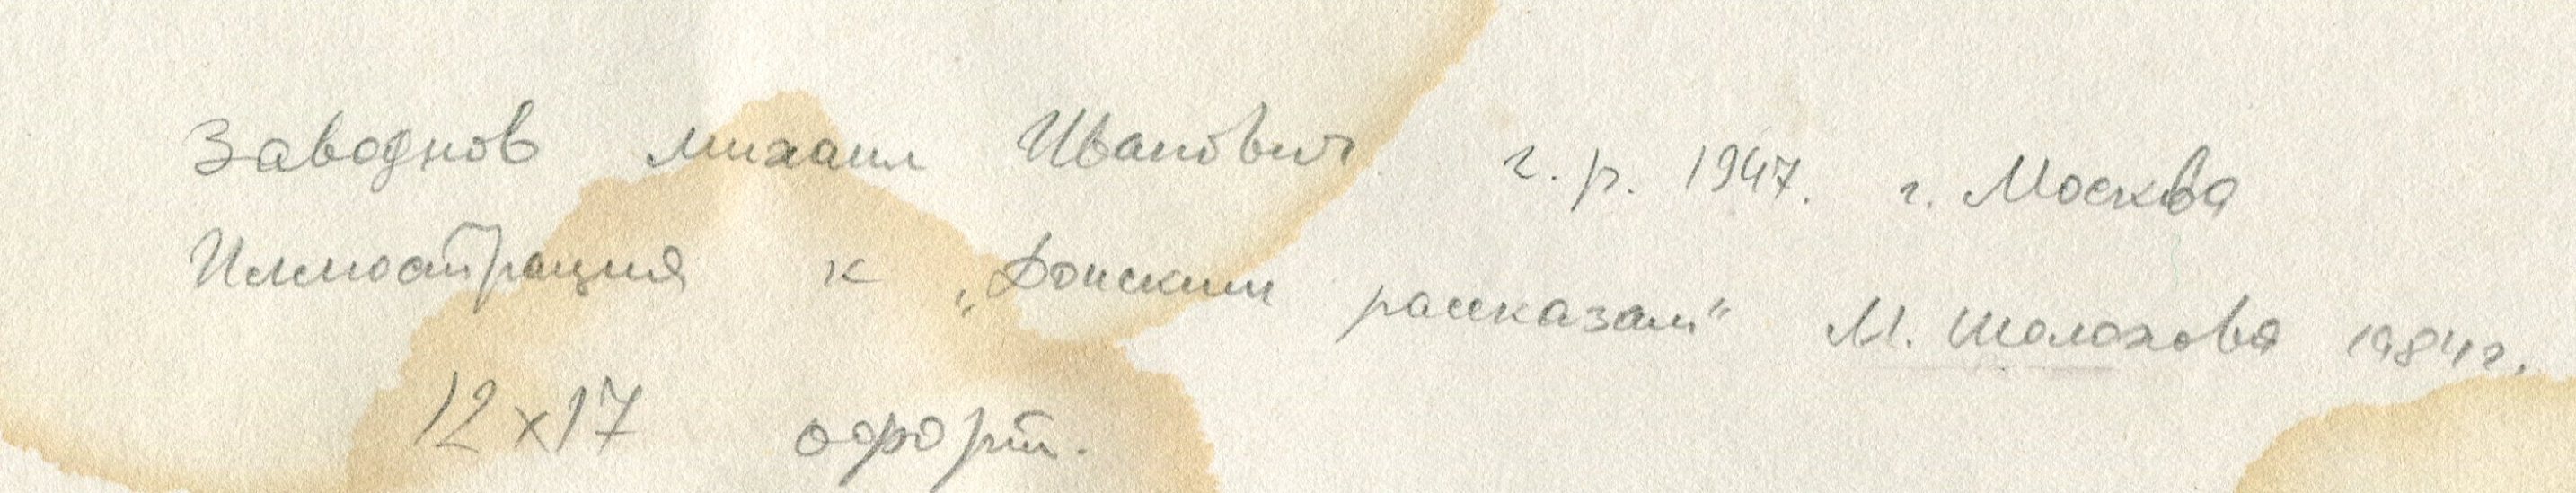 Заводнов Михаил Иванович г.р. 1947. г. Москва
Иллюстрация к „Донским рассказам" М. Шолохова 1984г.
12х17 офорт.